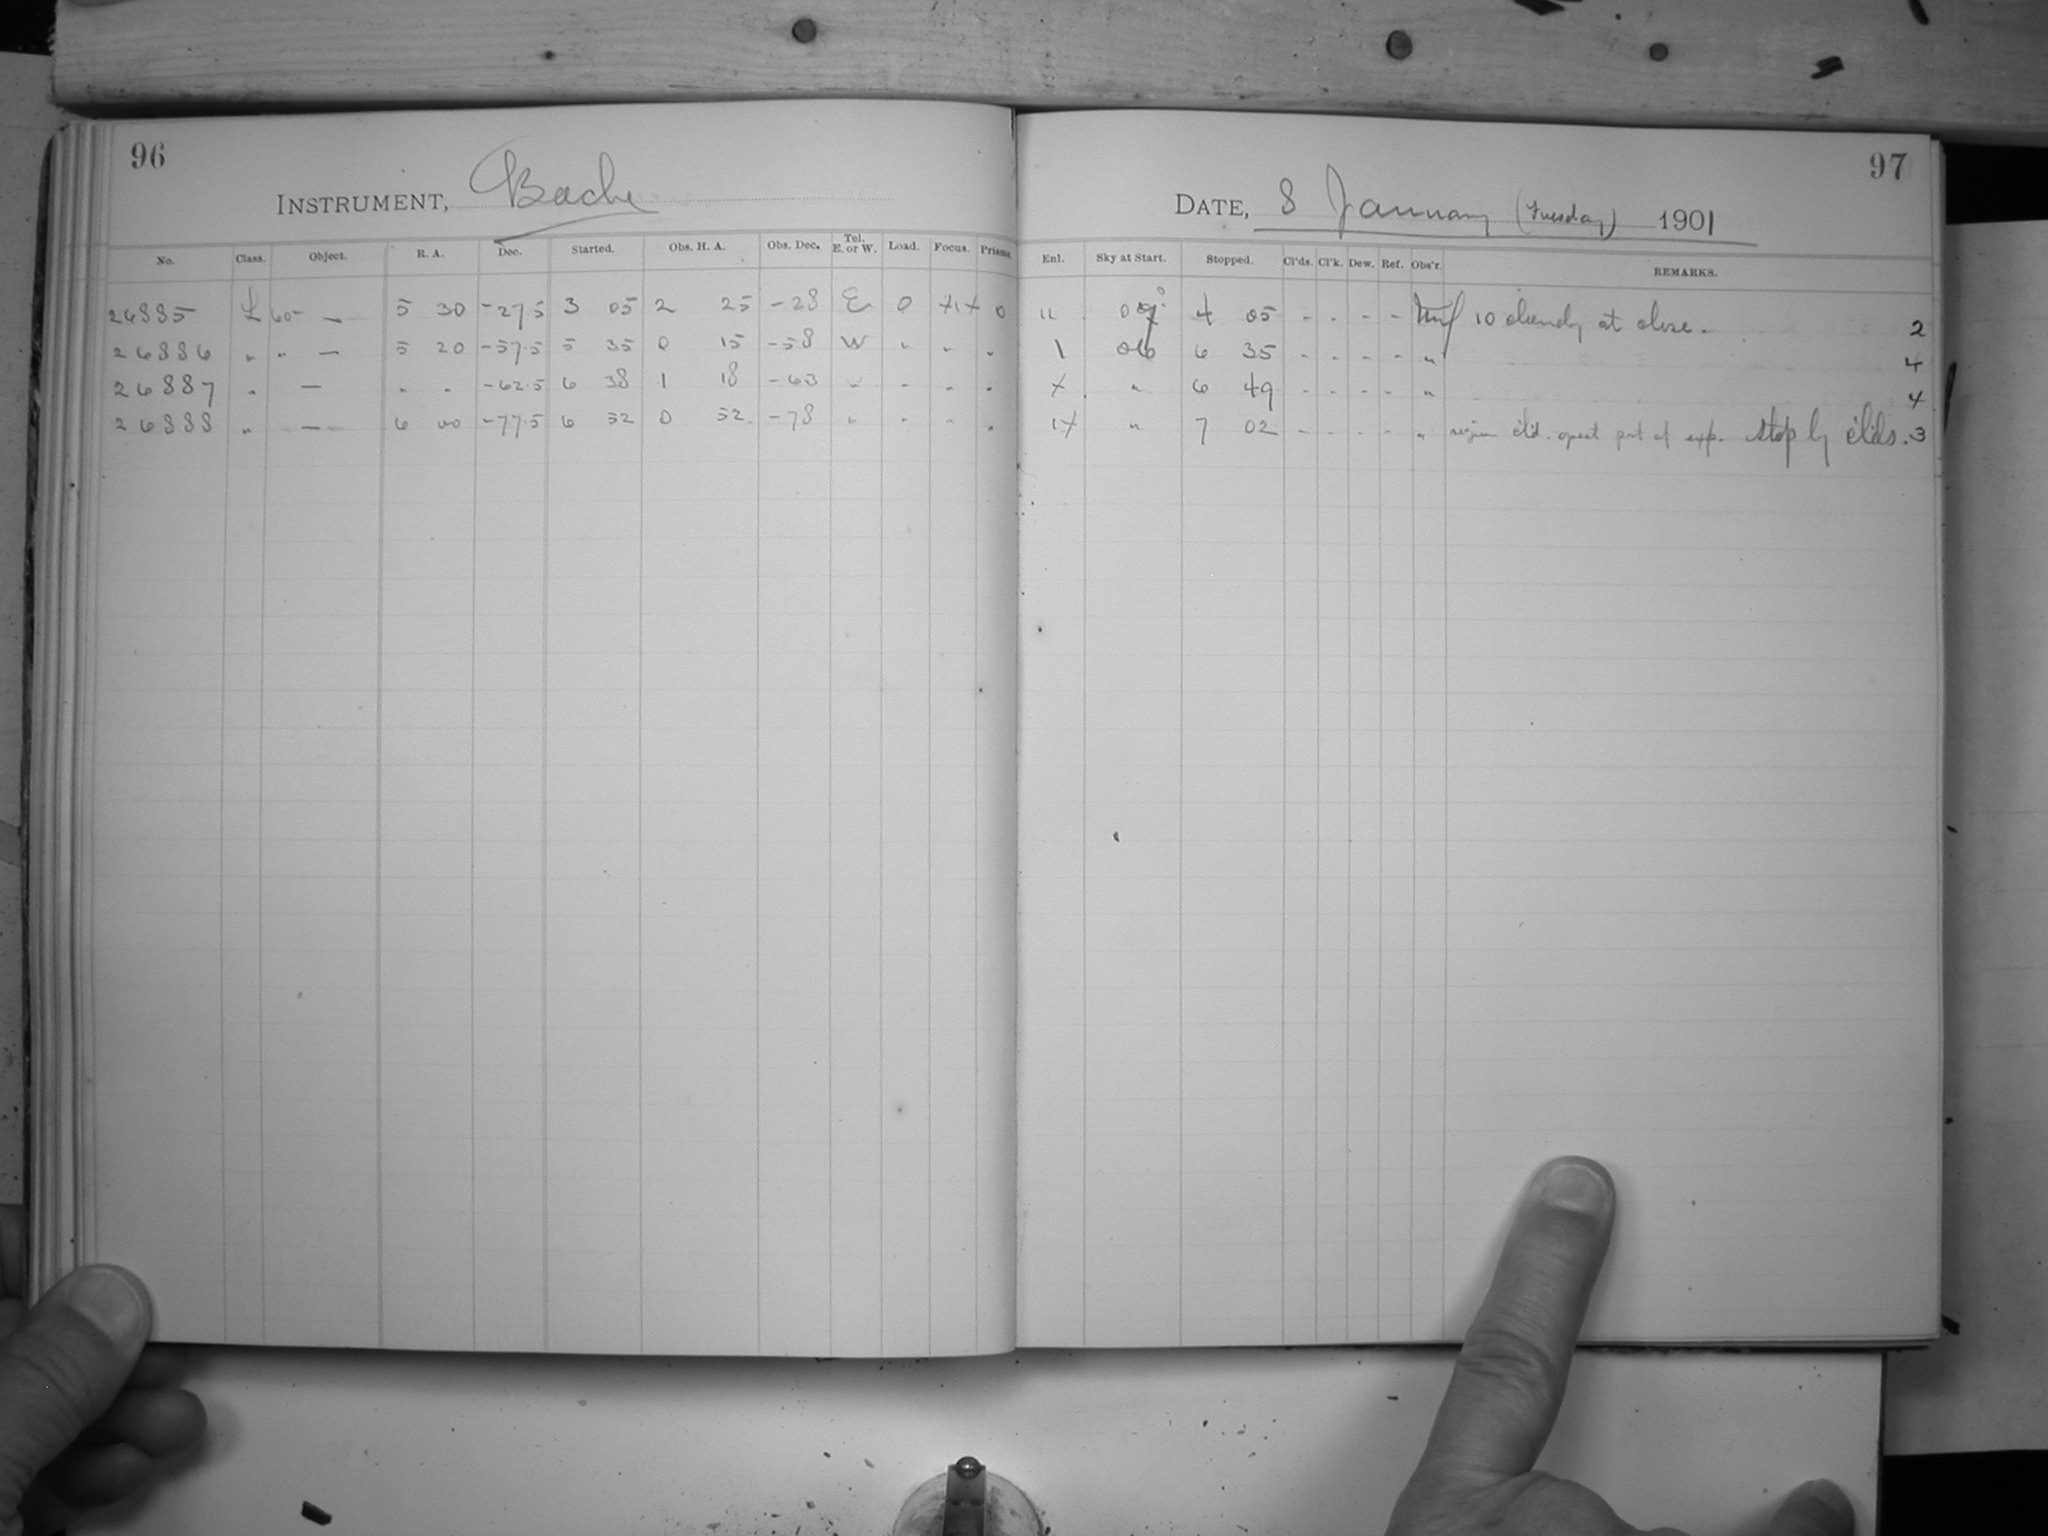 96
INSTRUMENT, Bache
No. Class. Object. R. A. Dec. Started. Obs. H. A. Obs. Dec. Tel. E. or W. Load. Focus. Prisms
26885 L 60- — 5 30 -27.5 3 05 2 25 -28 E 0 0
26886 " " — 5 20 -57.5 5 35 0 15 -58 W " " "
26887 " — " " -62.5 6 38 1 18 -63 " " " "
26888 " — 6 00 -77.5 6 52 0 52 -78 " " " "
97
DATE, 8 January (Tuesday) 1901
Enl. Sky at Start. Stopped. Cl'ds. Cl'k. Dew. Ref. Obs'r. REMARKS.
11 4 05 - - - - 10 cloudy at close. 2
1 6 35 - - - - " 4
" 6 49 - - - - " 4
" 7 02 - - - - " region cl'd. part of exp. Stop by cl'ds. 3